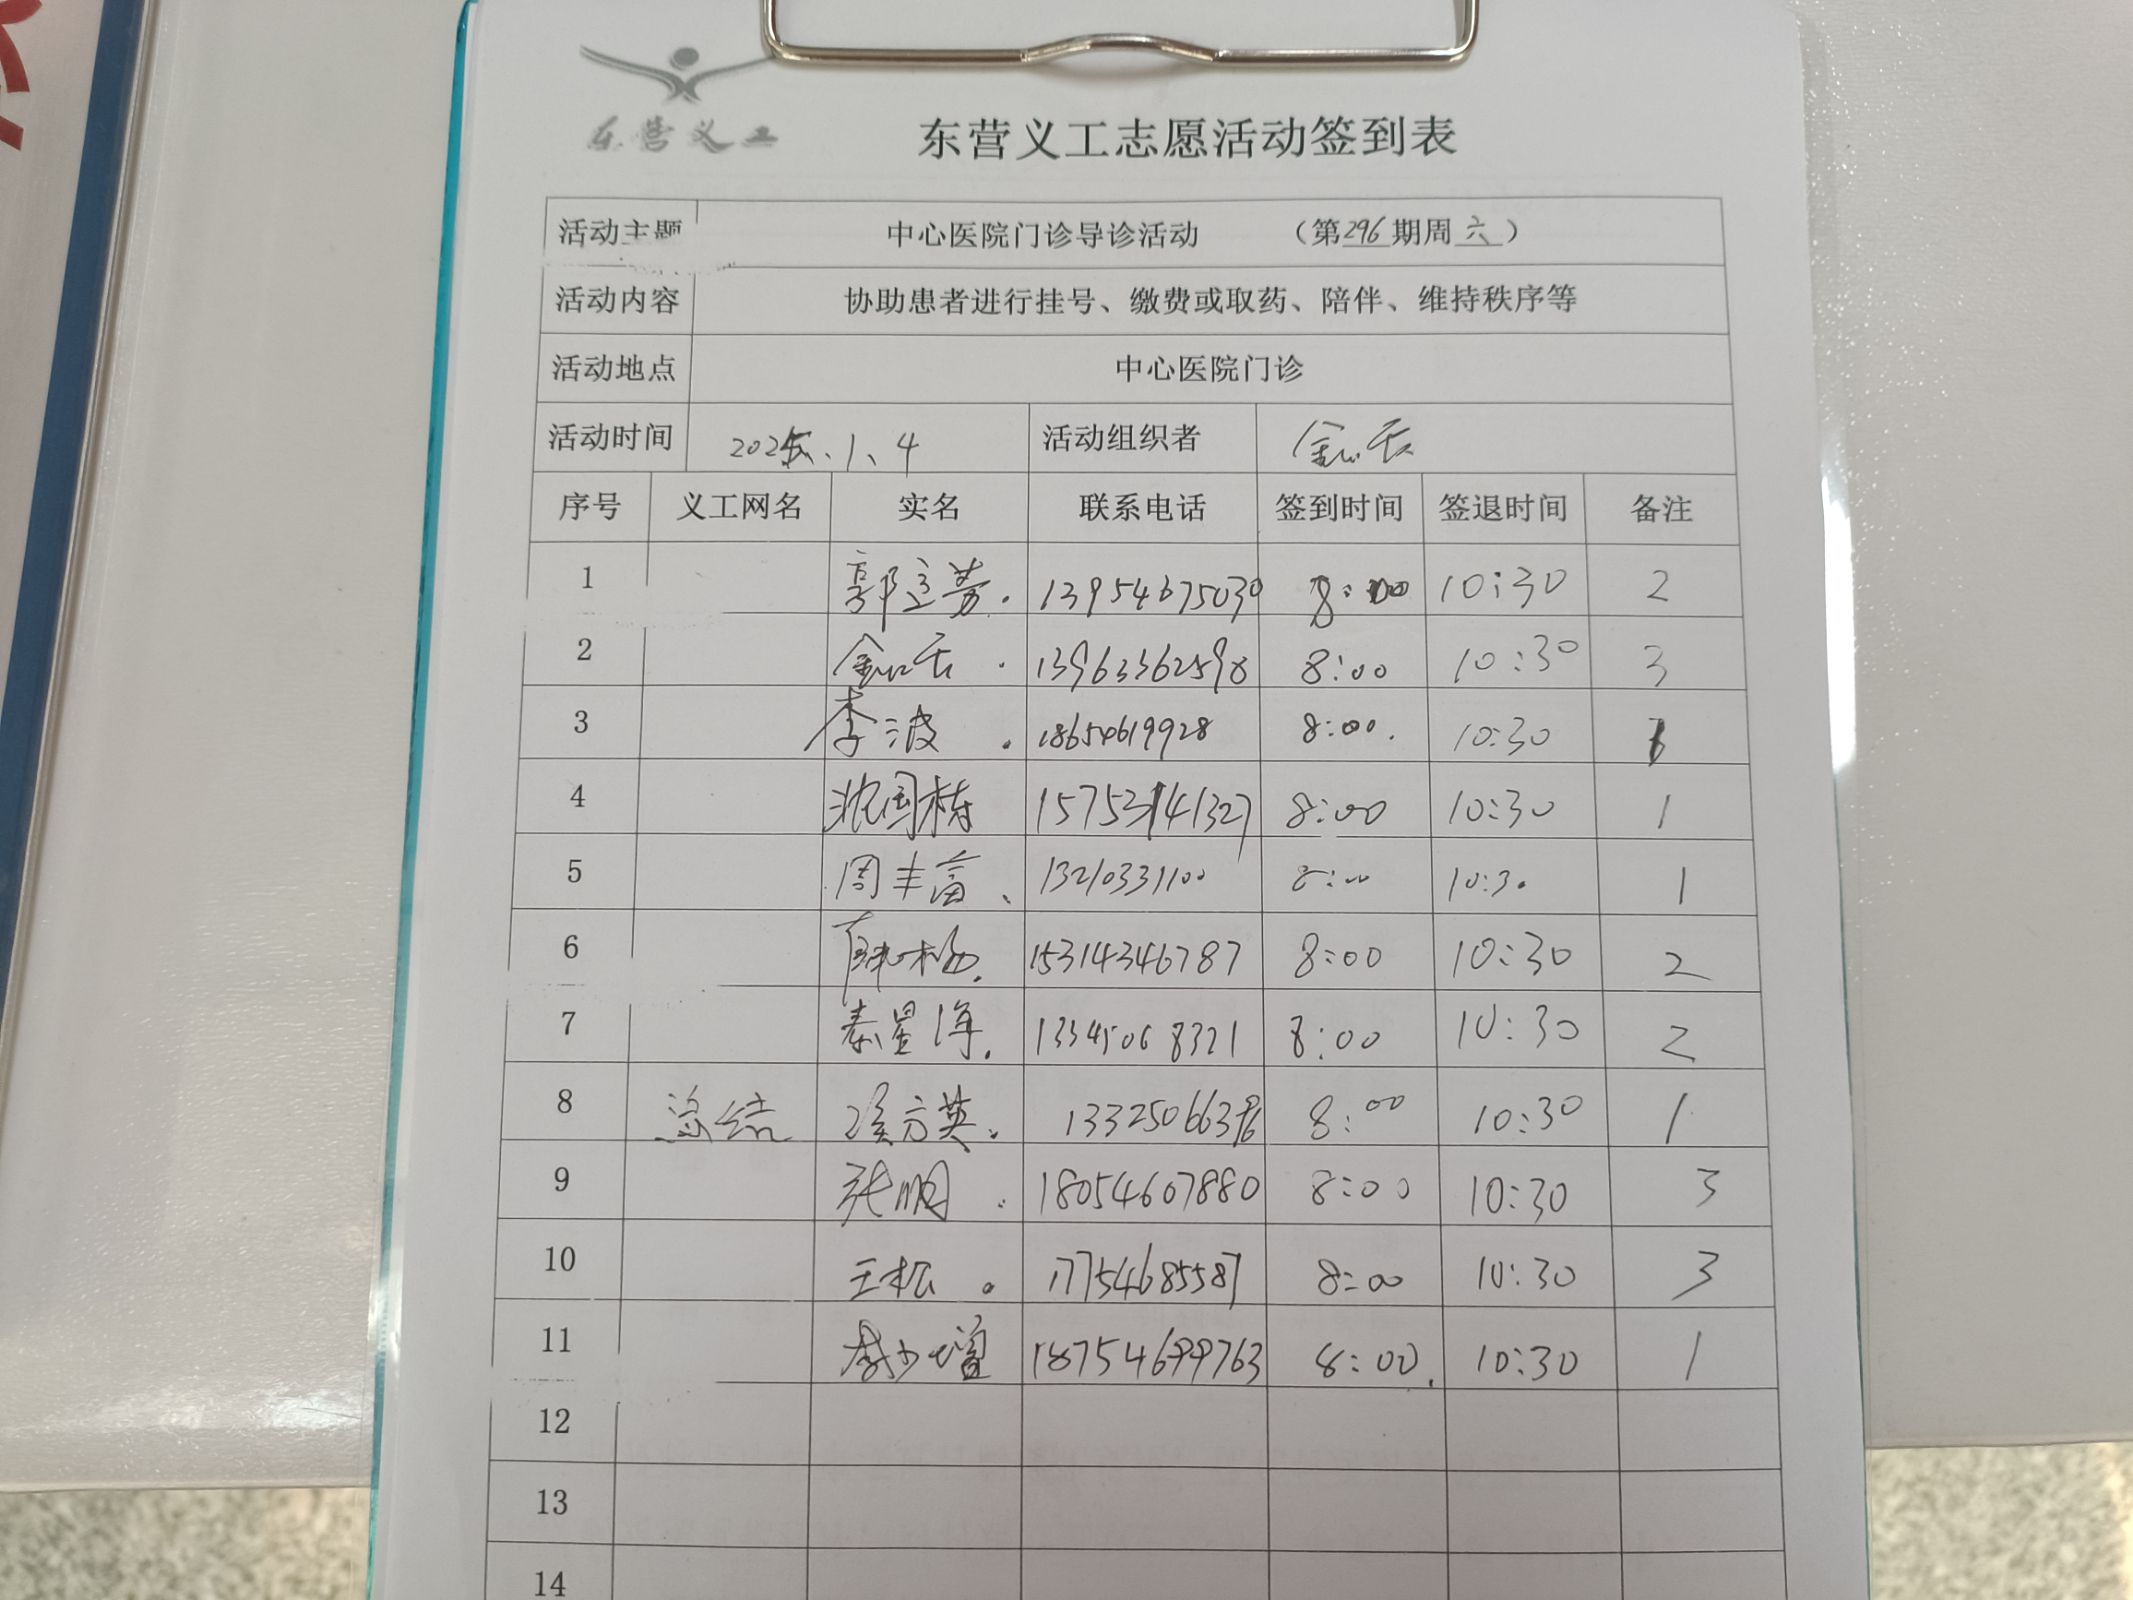 东营义工
东营义工志愿活动签到表
活动主题 中心医院门诊导诊活动 （第296期周六）
活动内容 协助患者进行挂号、缴费或取药、陪伴、维持秩序等
活动地点 中心医院门诊
活动时间 2025.1.4 活动组织者
序号 义工网名 实名 联系电话 签到时间 签退时间 备注
1 13954675030 8:00 10:30 2
2 13963362598 8:00 10:30 3
3 李波 18654619928 8:00 10:30
4 沈国栋 15753141327 8:00 10:30 1
5 周丰富 13210331100 8:00 10:30 1
6 15314346787 8:00 10:30 2
7 秦星海 13345068321 8:00 10:30 2
8 总结 8:00 10:30 1
9 张明 18054607880 8:00 10:30 3
10 王松 17754685587 8:00 10:30 3
11 李少增 18754699763 8:00 10:30 1
12
13
14